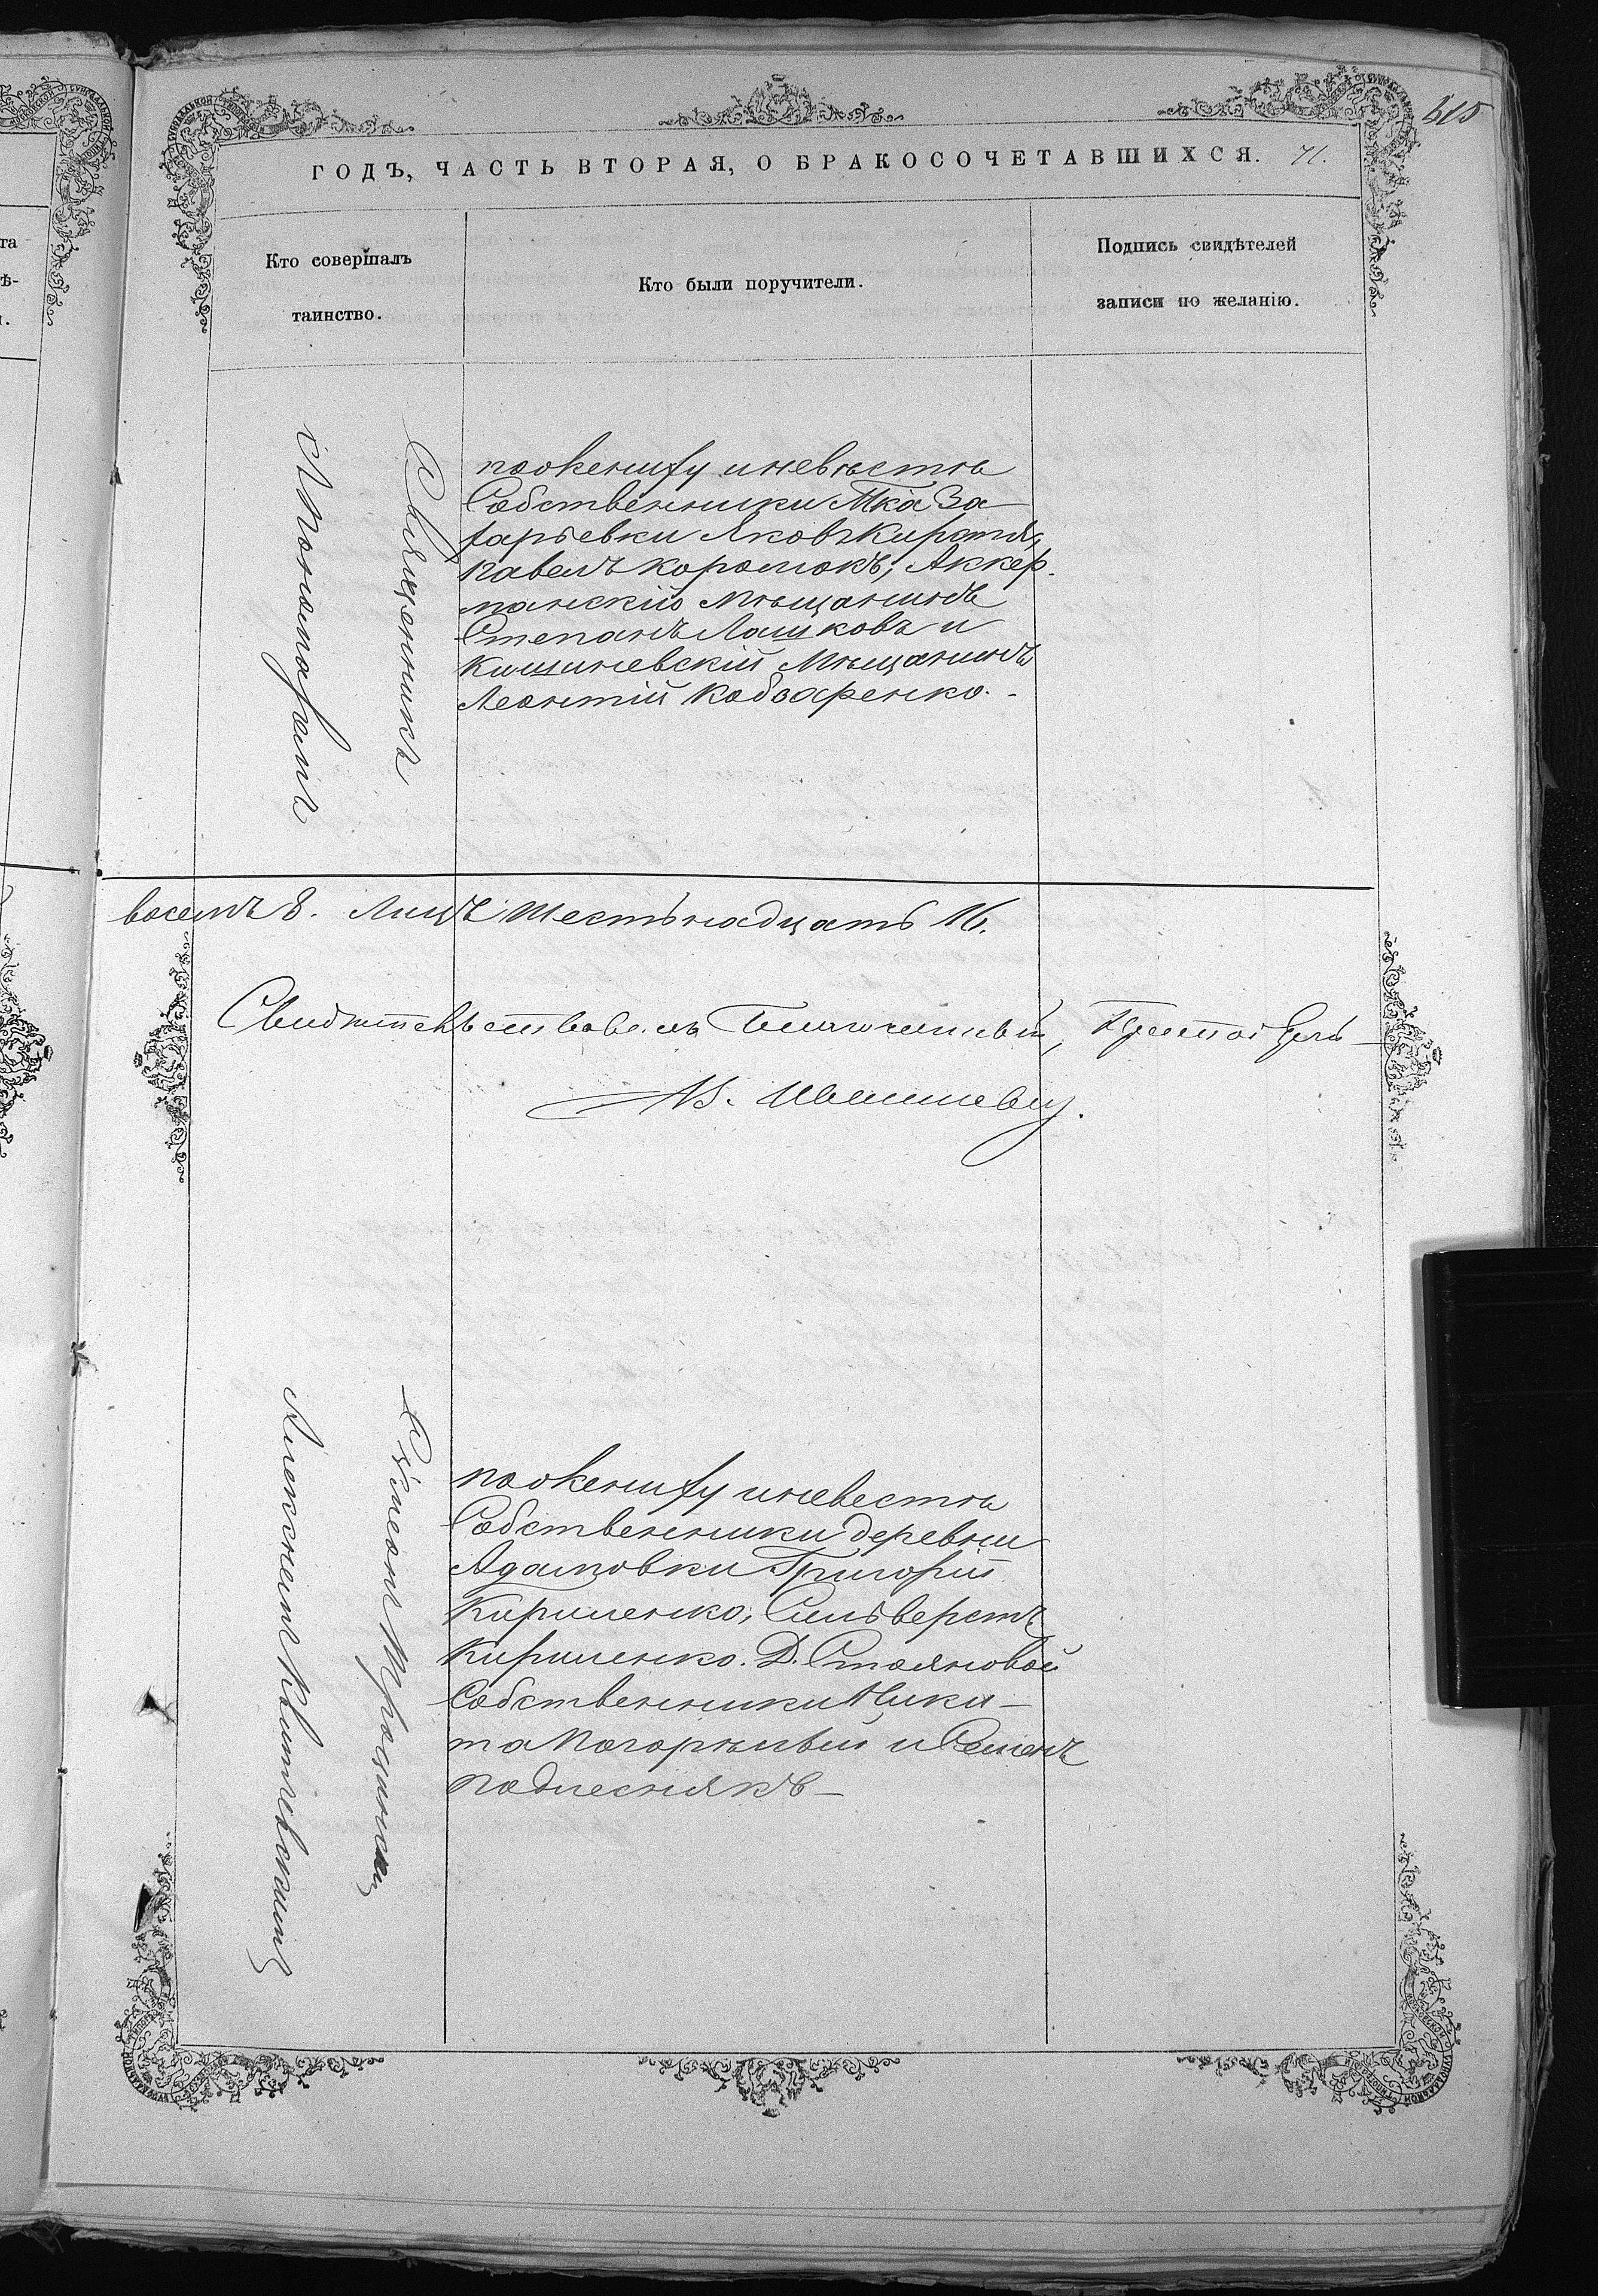 615
ГОДЪ, ЧАСТЬ ВТОРАЯ, О БРАКОСОЧЕТАВШИХСЯ. 71.
Кто совершалъ
таинство.
Кто были поручители.
Подпись свидѣтелей
записи по желанію.
Священникъ
по жениху и невѣстѣ
Собственники М־ка За
харьевки Яковъ
Павелъ Коромокъ, Аккер-
манскій Мѣщанинъ
Степанъ Лашковъ и
Кишиневскій Мѣщанинъ
Леонтій Кобзаренко.-
восемъ 8. Лицъ Шестьнадцать 16.
Свидѣтельствовалъ Благочинный,
Священникъ
по жениху и невестѣ
Собственники деревни
Адамовки Григорій
Кириленко, Сильверстъ
Кириленко. Д. Стояновой
Собственники Ники-
та Погорѣлый и Семенъ
Подлеснякъ-